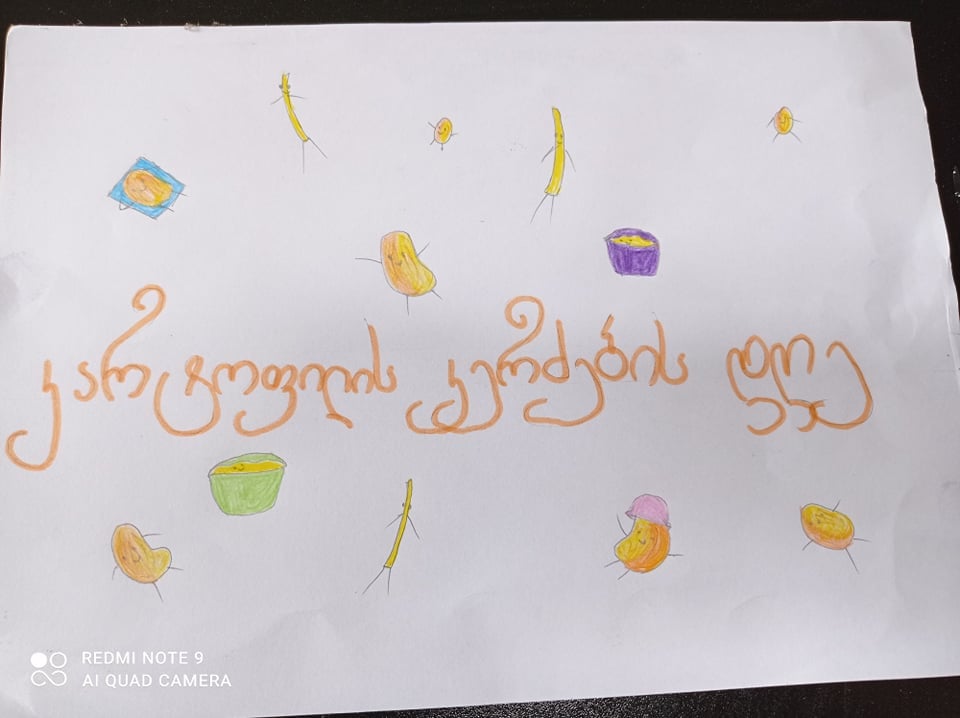 კარტოფილის კერძების დღე
REDMI NOTE 9
AI QUAD CAMERA